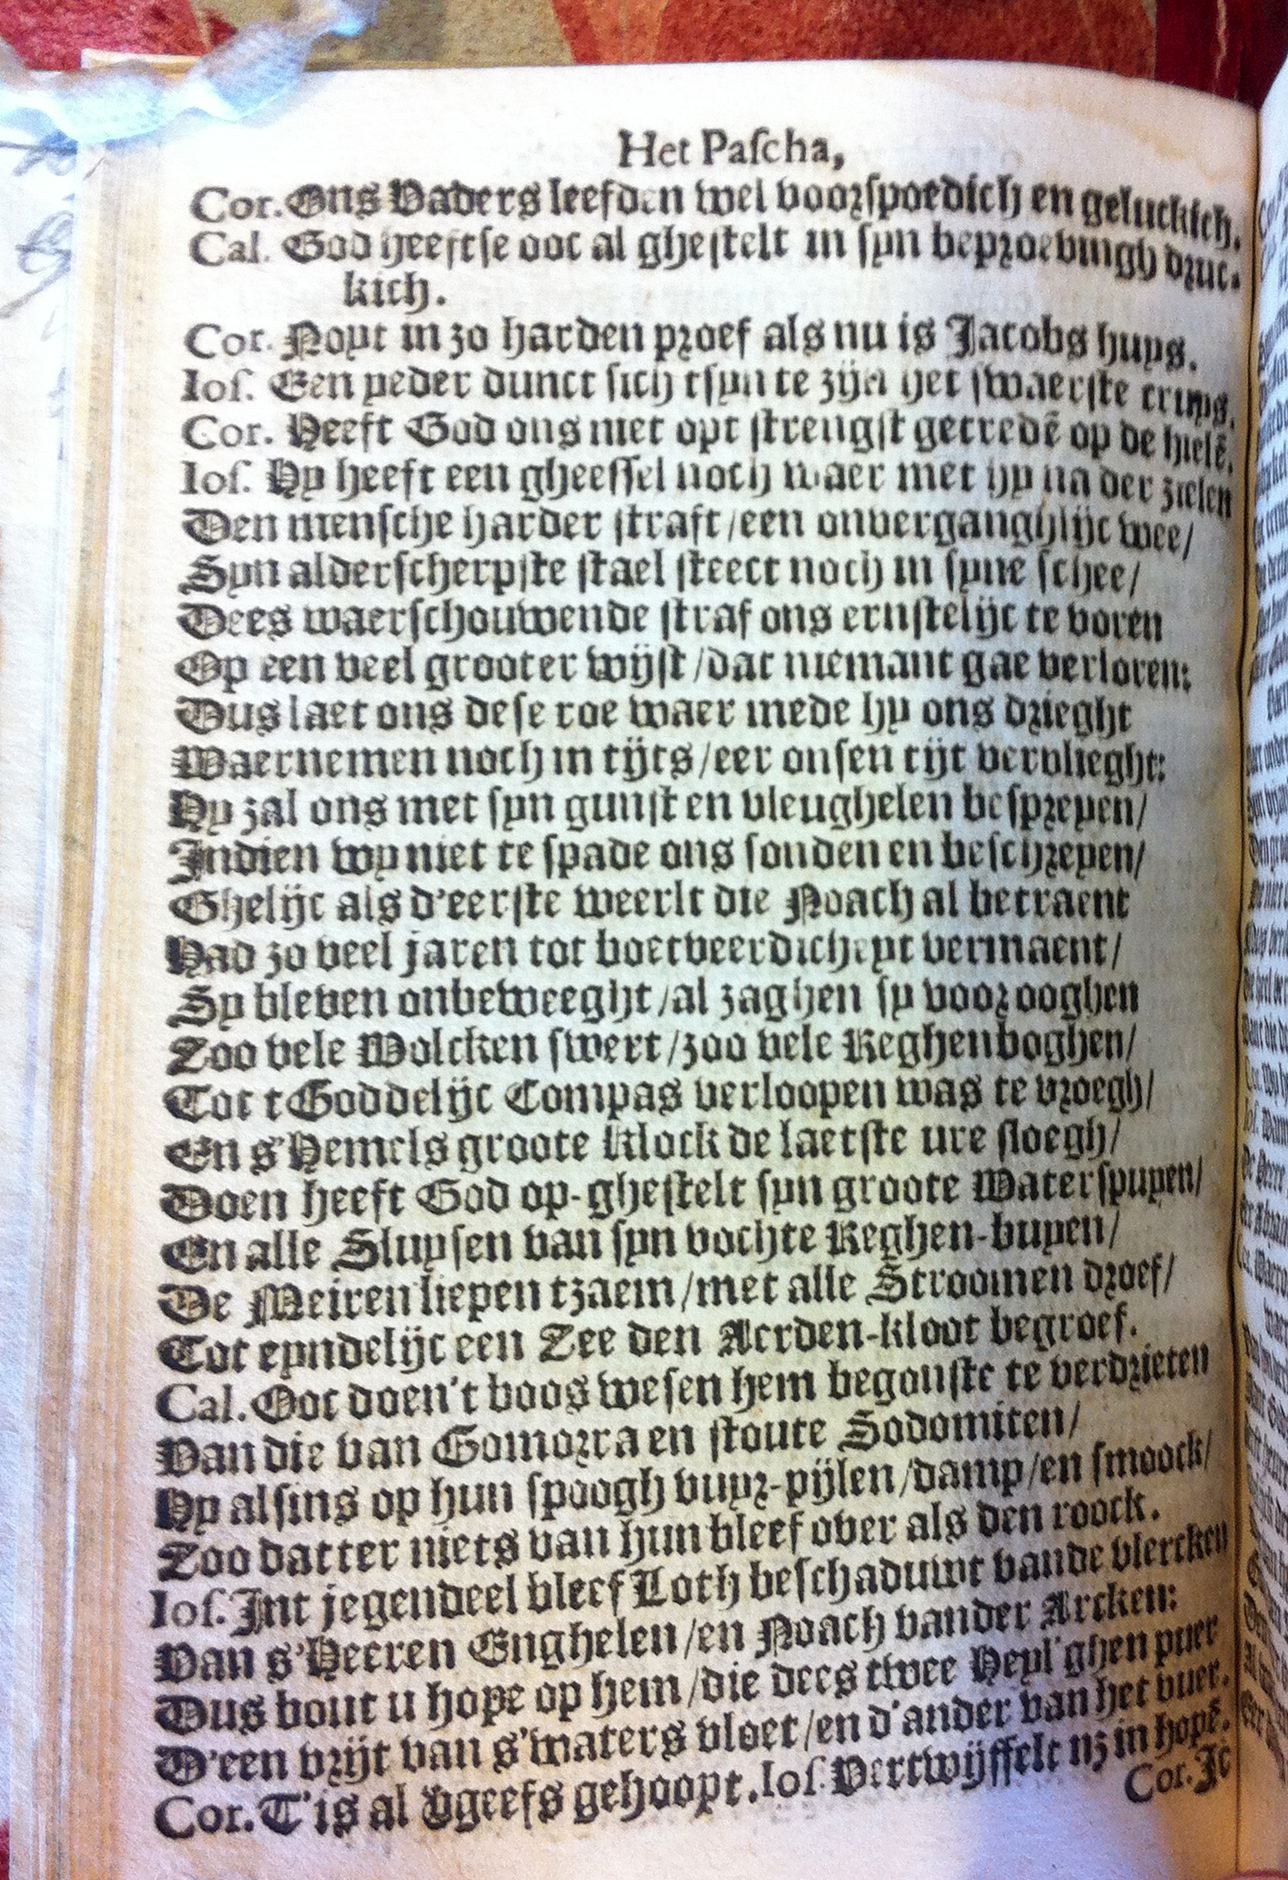 Het Paſcha,
Cor. Ons Vaders leefden wel voorſpoedich en geluckich.
Cal. God heeftſe ooc al gheſtelt in ſyn beproevingh druc-
kich.
Cor. Noyt in zo harden proef als nu is Jacobs huys.
Ioſ. Een yeder dunct ſich tſyn te zijn het ſwaerſte cruys.
Cor. Heeft God ons niet opt ſtrengſt getredē op de hielē.
Ioſ. Hy heeft een gheeſſel noch waer met hy na der zielen
Den menſche harder ſtraft/een onverganghlijc wee/
Syn alderſcherpſte ſtael ſteect noch in ſyne ſchee/
Dees waerſchouwende ſtraf ons ernſtelijc te voren
Op een veel grooter wijſt/dat niemant gae verloren:
Dus laet ons deſe roe waer mede hy ons drieght
Waernemen noch in tijts/eer onſen tijt vervlieght:
Hy zal ons met ſyn gunſt en vleughelen beſpreyen/
Indien wy niet te ſpade ons ſonden en beſchreyen/
Ghelijc als d'eerſte weerlt die Noach al betraent
Had zo veel jaren tot boetveerdicheyt vermaent/
Sy bleven onbeweeght/al zaghen ſy voor ooghen
Zoo vele Wolcken ſwert/zoo vele Reghenboghen/
Tot t Goddelijc Compas verloopen was te vroegh/
En s'Hemels groote klock de laetſte ure ſloegh/
Doen heeft God op-gheſtelt ſyn groote Waterſpuyen/
En alle Sluyſen van ſyn vochte Reghen-buyen/
De Meiren liepen tzaem/met alle Stroomen droef/
Tot eyndelijc een Zee den Aerden-kloot begroef.
Cal. Ooc doen't boos weſen hem begouſte te verdrieten
Van die van Gomorra en ſtoute Sodomiten/
Hy alſins op hun ſpoogh vuyr-pijlen/damp/en ſmoock/
Zoo datter niets van hun bleef over als den roock.
Ioſ. Int jegendeel bleef Loth beſchaduwt vande vlercken
Van s'Heeren Enghelen/en Noach vander Arcken:
Dus bout u hope op hem/die dees twee Heyl'ghen puer
D'een vrijt van s'waters vloet/en d'ander van het vuer.
Cor. T'is al Vgeefs gehoopt. Ioſ. Vertwijffelt nz in hopē.
Cor. Ic